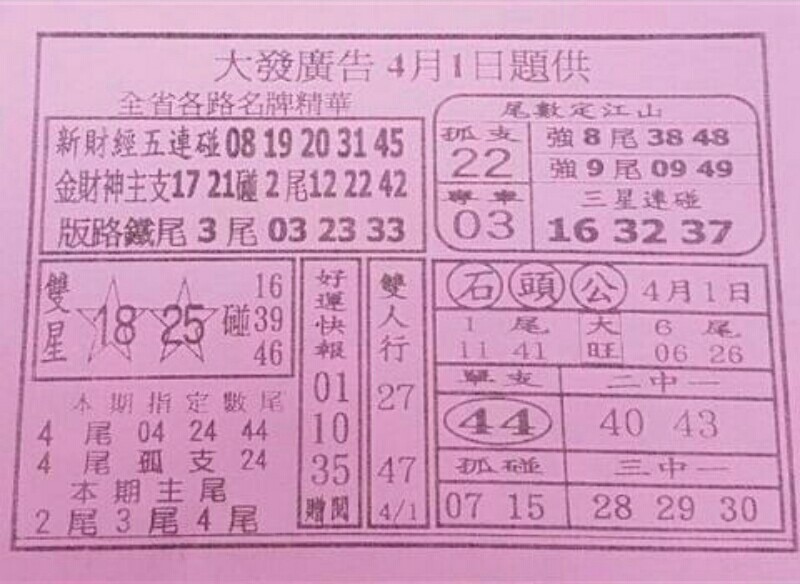 大發廣告 4月1日題供
全省各路名牌精華
新財經五連碰 08 19 20 31 45
金財神主支 17 21 碰 2 尾 12 22 42
版路鐵尾 3 尾 03 23 33
尾數定江山
孤支
22
專車
03
強 8 尾 38 48
強 9 尾 09 49
三星連碰
16 32 37
雙星
18 25 碰
16
39
46
本期指定數尾
4 尾 04 24 44
4 尾 孤 支 24
本期主尾
2 尾 3 尾 4 尾
好運快報
01
10
35
贈閱
雙人行
27
47
4/1
石頭公 4月1日
1 尾 大 6 尾
11 41 旺 06 26
單支 二中一
44 40 43
孤碰 三中一
07 15 28 29 30